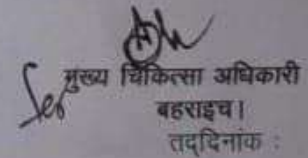 मुख्य चिकित्सा अधिकारी
बहराइच।
तद्दिनांक :